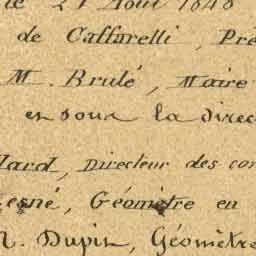 le 21 Août 1848
de Caffarelli, Pré
M. Brulé, Maire
et sous la direc
lard, Directeur des con
esné, Géomètre en
Dupin, Géomètre